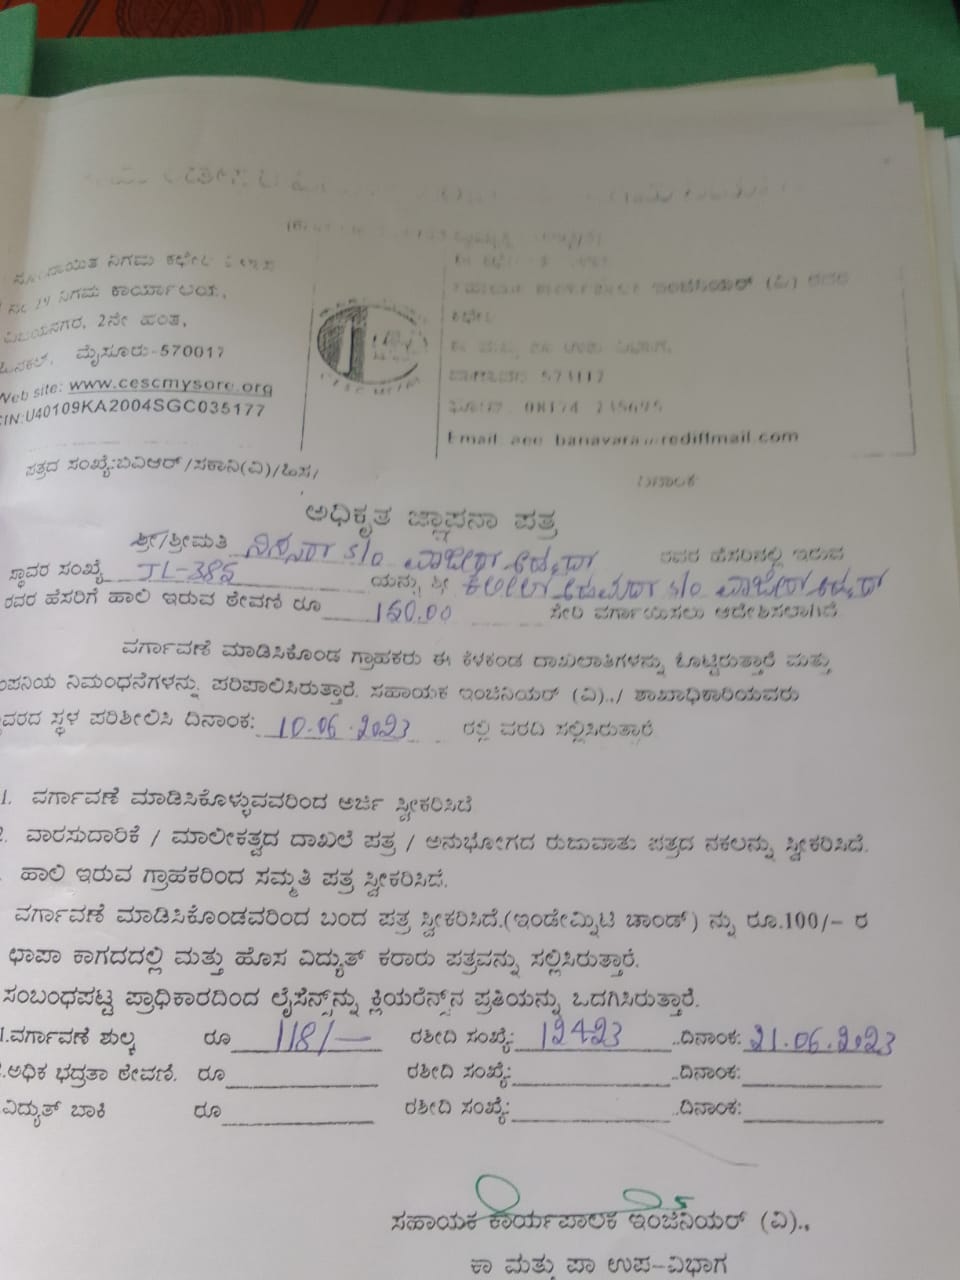 ನಿಗಮ ಕಾರ್ಯಾಲಯ,
ವಿಜಯನಗರ, 2ನೇ ಹಂತ,
ಹಿನಕಲ್, ಮೈಸೂರು-570017
Web site: www.cescmysore.org
CIN:U40109KA2004SGC035177
ಇಂಜಿನಿಯರ್ (ವಿ) ರವರ
ಕಛೇರಿ
573112
08174 235695
Email aee banavara@rediffmail.com
ಪತ್ರದ ಸಂಖ್ಯೆ:ಬಿವಿಆರ್/ಸಕಾನಿ(ವಿ)/ಹಿಸ/
ದಿನಾಂಕ
ಅಧಿಕೃತ ಜ್ಞಾಪನಾ ಪತ್ರ
ಶ್ರೀ/ಶ್ರೀಮತಿ s/o ರವರ ಹೆಸರಿನಲ್ಲಿ ಇರುವ
ಸ್ಥಾವರ ಸಂಖ್ಯೆ JL-385 ಯನ್ನು ಶ್ರೀ s/o
ರವರ ಹೆಸರಿಗೆ ಹಾಲಿ ಇರುವ ಠೇವಣಿ ರೂ 150.00 ಸೇರಿ ವರ್ಗಾಯಿಸಲು ಆದೇಶಿಸಲಾಗಿದೆ
ವರ್ಗಾವಣೆ ಮಾಡಿಸಿಕೊಂಡ ಗ್ರಾಹಕರು ಈ ಕೆಳಕಂಡ ದಾಖಲಾತಿಗಳನ್ನು ಕೊಟ್ಟಿರುತ್ತಾರೆ ಮತ್ತು
ಕಂಪನಿಯ ನಿಬಂಧನೆಗಳನ್ನು ಪರಿಪಾಲಿಸಿರುತ್ತಾರೆ. ಸಹಾಯಕ ಇಂಜಿನಿಯರ್ (ವಿ)../ ಶಾಖಾಧಿಕಾರಿಯವರು
ಸ್ಥಳ ಪರಿಶೀಲಿಸಿ ದಿನಾಂಕ: 10.06.2023 ರಲ್ಲಿ ವರದಿ ಸಲ್ಲಿಸಿರುತ್ತಾರೆ
1. ವರ್ಗಾವಣೆ ಮಾಡಿಸಿಕೊಳ್ಳುವವರಿಂದ ಅರ್ಜಿ ಸ್ವೀಕರಿಸಿದೆ
2. ವಾರಸುದಾರಿಕೆ / ಮಾಲೀಕತ್ವದ ದಾಖಲೆ ಪತ್ರ / ಅನುಭೋಗದ ರುಜುವಾತು ಪತ್ರದ ನಕಲನ್ನು ಸ್ವೀಕರಿಸಿದೆ.
ಹಾಲಿ ಇರುವ ಗ್ರಾಹಕರಿಂದ ಸಮ್ಮತಿ ಪತ್ರ ಸ್ವೀಕರಿಸಿದೆ.
ವರ್ಗಾವಣೆ ಮಾಡಿಸಿಕೊಂಡವರಿಂದ ಬಂದ ಪತ್ರ ಸ್ವೀಕರಿಸಿದೆ.(ಇಂಡೇಮ್ನಿಟಿ ಬಾಂಡ್) ನ್ನು ರೂ.100/- ರ
ಛಾಪಾ ಕಾಗದದಲ್ಲಿ ಮತ್ತು ಹೊಸ ವಿದ್ಯುತ್ ಕರಾರು ಪತ್ರವನ್ನು ಸಲ್ಲಿಸಿರುತ್ತಾರೆ.
ಸಂಬಂಧಪಟ್ಟ ಪ್ರಾಧಿಕಾರದಿಂದ ಲೈಸೆನ್ಸ್‌ನ್ನು ಕ್ಲಿಯರೆನ್ಸ್‌ನ ಪ್ರತಿಯನ್ನು ಒದಗಿಸಿರುತ್ತಾರೆ.
1.ವರ್ಗಾವಣೆ ಶುಲ್ಕ ರೂ 118/- ರಶೀದಿ ಸಂಖ್ಯೆ: 12423 ..ದಿನಾಂಕ: 21.06.2023
.ಅಧಿಕ ಭದ್ರತಾ ಠೇವಣಿ. ರೂ ರಶೀದಿ ಸಂಖ್ಯೆ: ..ದಿನಾಂಕ:
.ವಿದ್ಯುತ್ ಬಾಕಿ ರೂ ರಶೀದಿ ಸಂಖ್ಯೆ: ..ದಿನಾಂಕ:
ಸಹಾಯಕ ಕಾರ್ಯಪಾಲಕ ಇಂಜಿನಿಯರ್ (ವಿ).,
ಕಾ ಮತ್ತು ಪಾ ಉಪ-ವಿಭಾಗ